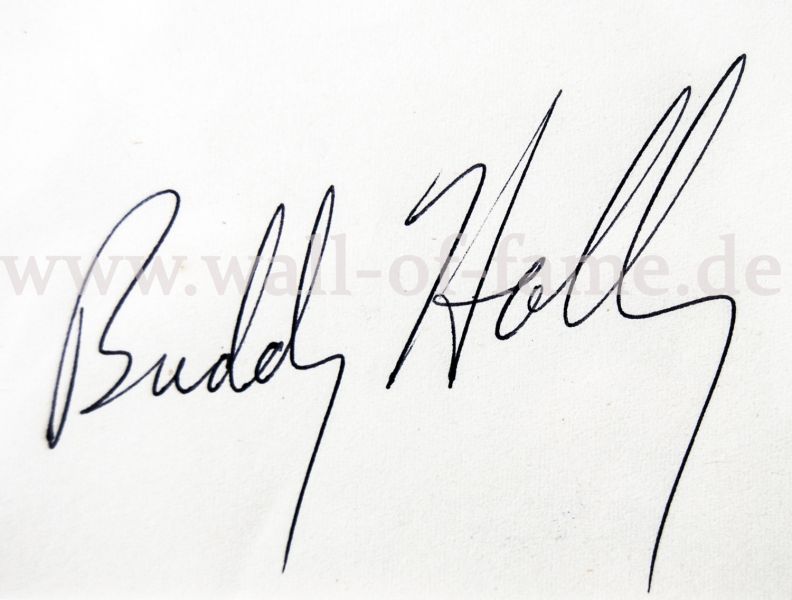 Buddy Holly
www.wall-of-fame.de